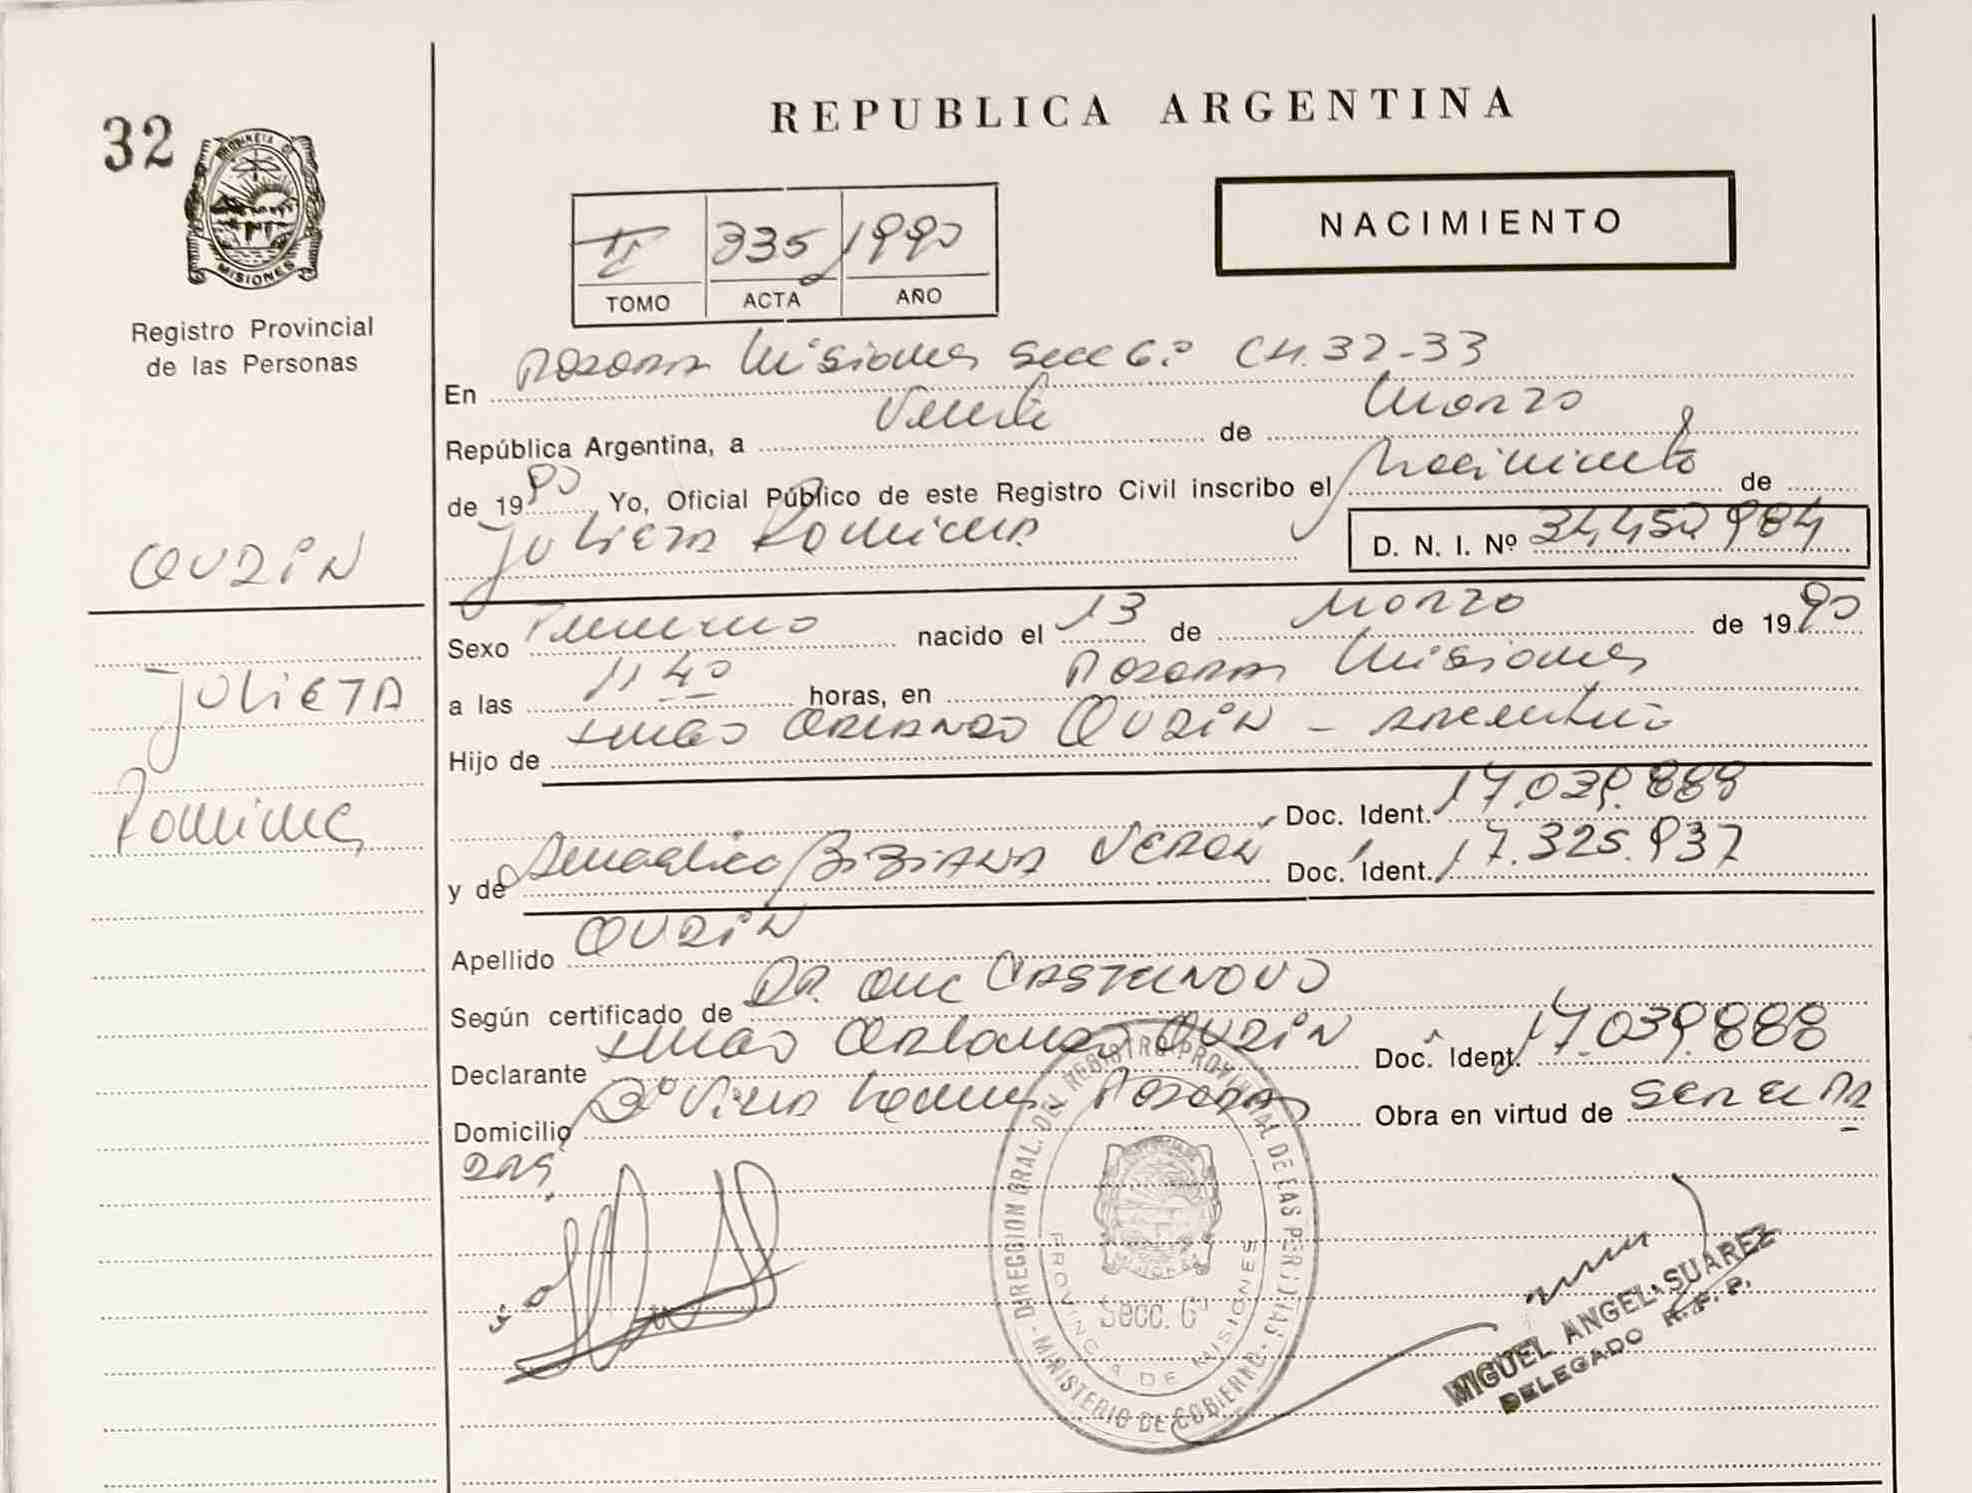 32
PROVINCIA DE
MISIONES
Registro Provincial
de las Personas
REPUBLICA ARGENTINA
NACIMIENTO
II 335 1990
TOMO ACTA AÑO
En Posadas Misiones Secc 6º CH. 32-33
República Argentina, a Veinte de Marzo
de 1990 Yo, Oficial Público de este Registro Civil inscribo el Nacimiento de
Julieta Romina D. N. I. Nº 34,450984
QUZIN
Julieta
Romina
Sexo Femenino nacido el 13 de Marzo de 1990
a las 11 40 horas, en Posadas Misiones
Hijo de Orlando QUZIN - Argentino
Doc. Ident. 17.039.888
y de BiBiANA VERÓN Doc. Ident. 17.325.937
Apellido QUZIN
Según certificado de DR. CASTELNOVO
Declarante Orlando QUZIN Doc. Ident. 17.039.888
Domicilio Posadas Obra en virtud de Ser el PA
DRE,
DIRECCION GRAL. DEL REGISTRO PROVINCIAL DE LAS PERSONAS
MINISTERIO DE GOBIERNO
PROVINCIA DE MISIONES
Secc. 6ª
MIGUEL ANGEL SUAREZ
DELEGADO R. P. P.